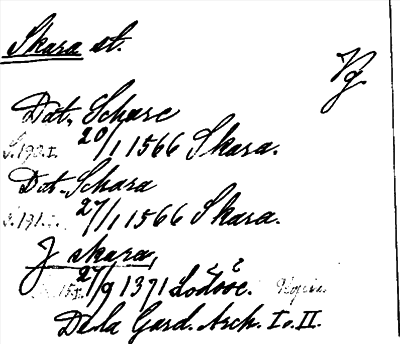 Skara st.
Vg.
Dat. Scharc
20/1 1566 Skara.
Dat. Schara
27/1 1566 Skara.
J skara,
27/9 1371 Lödöse.
De la Gard. Arch. I o. II.